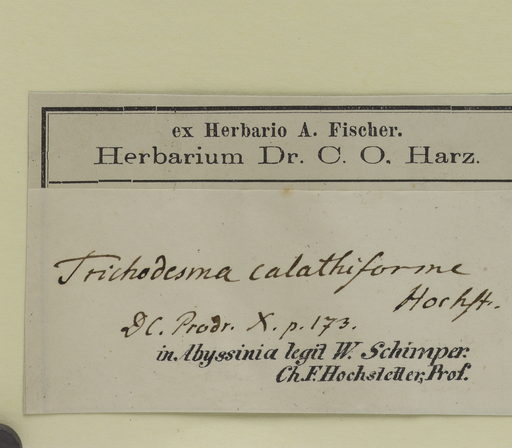 ex Herbario A. Fischer.
Herbarium Dr. C. O. Harz.
Trichodesma calathiforme
Hochst.
DC. Prodr. X. p. 173.
in Abyssinia legit W. Schimper.
Ch. F. Hochstetter, Prof.